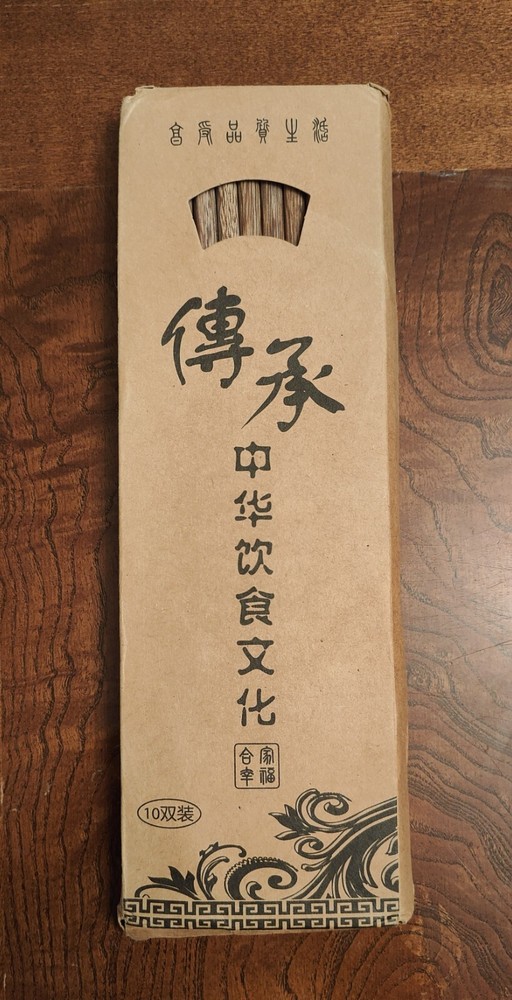 享受品質生活
傳承
中华饮食文化
合家
幸福
10双装